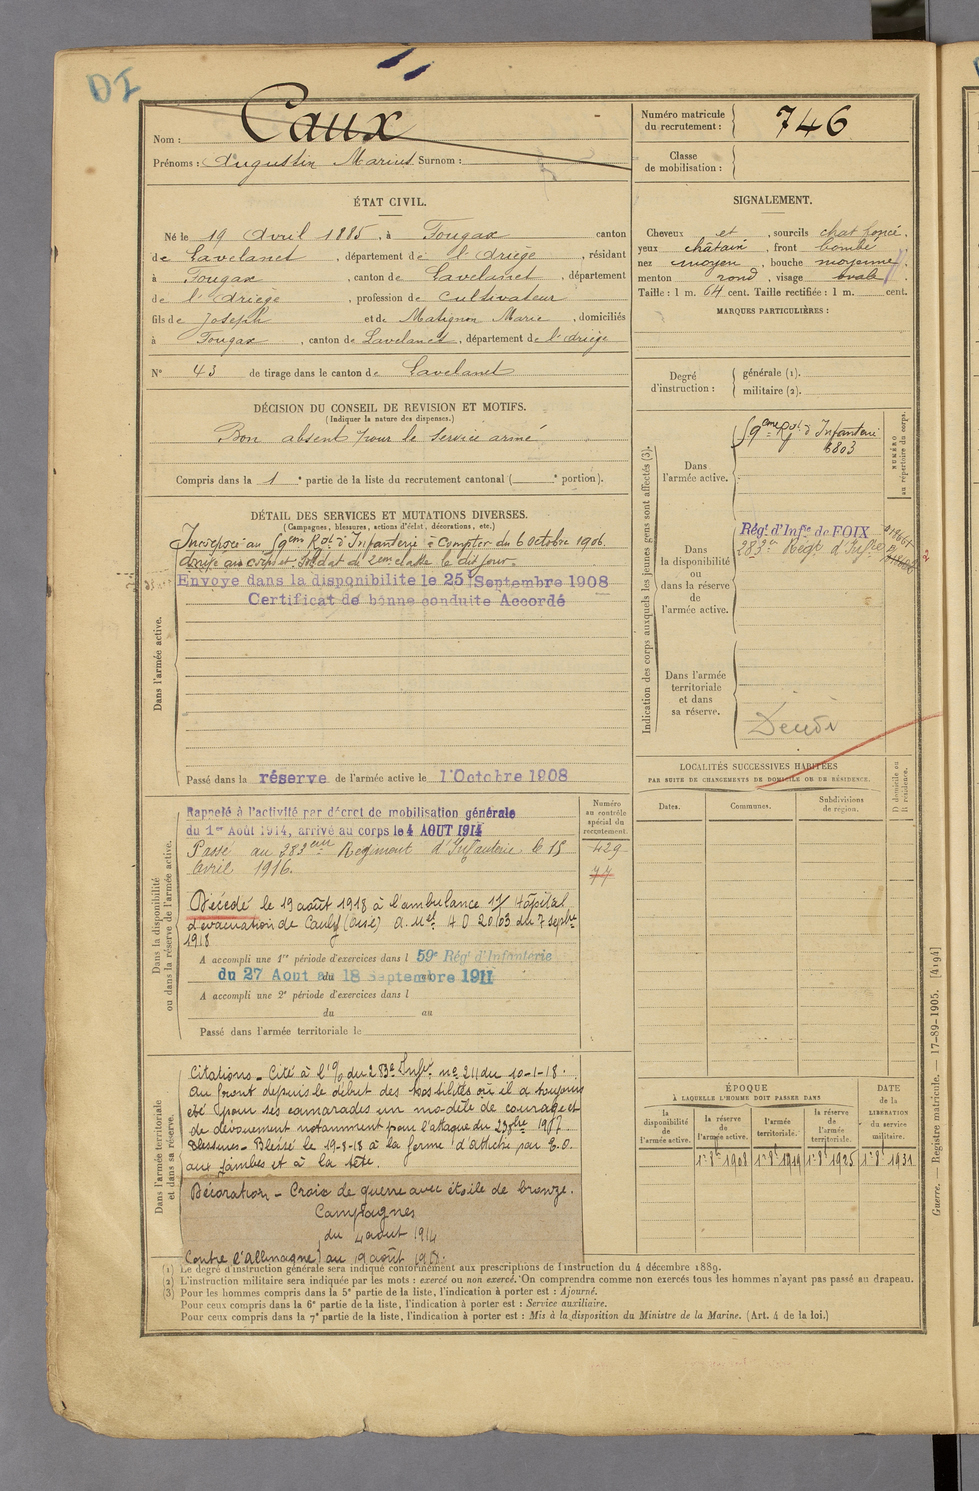 DI
Nom : Caux
Prénoms : Augustin Marius Surnom :
Numéro matricule du recrutement : 746
Classe de mobilisation :
ÉTAT CIVIL.
Né le 19 Avril 1885, à Fougax canton
de Lavelanet, département de l'Ariège, résidant
à Fougax, canton de Lavelanet, département
de l'Ariège, profession de cultivateur
fils de Joseph et de Matignon Marie, domiciliés
à Fougax, canton de Lavelanet, département de l'Ariège
N° 43 de tirage dans le canton de Lavelanet
SIGNALEMENT.
Cheveux et, sourcils chat foncé.
yeux châtain, front bombé
nez moyen, bouche moyenne,
menton rond, visage ovale
Taille : 1 m. 64 cent. Taille rectifiée : 1 m. cent.
MARQUES PARTICULIÈRES :
Degré d'instruction : générale (1).
militaire (2).
DÉCISION DU CONSEIL DE REVISION ET MOTIFS.
(Indiquer la nature des dispenses.)
Bon absent pour le service armé
Compris dans la 1e partie de la liste du recrutement cantonal ( e portion).
DÉTAIL DES SERVICES ET MUTATIONS DIVERSES.
(Campagnes, blessures, actions d'éclat, décorations, etc.)
Dans l'armée active.
Incorporé au 59eme Rgt d'Infanterie à Compter du 6 Octobre 1906
Arrivé au corps et soldat de 2eme classe le dit jour.
Envoyé dans la disponibilité le 25 Septembre 1908
Certificat de bonne conduite Accordé
Passé dans la réserve de l'armée active le 1' Octobre 1908
Indication des corps auxquels les jeunes gens sont affectés (3).
NUMÉRO au répertoire du corps.
Dans l'armée active.
59eme Rgt d'Infanterie
6803
Dans la disponibilité ou dans la réserve de l'armée active.
Régt d'Infie de FOIX
283e Régt d'Infie
Dans l'armée territoriale et dans sa réserve.
LOCALITÉS SUCCESSIVES HABITÉES
PAR SUITE DE CHANGEMENTS DE DOMICILE OU DE RÉSIDENCE.
Dates. Communes. Subdivisions de région.
D domicile ou R résidence.
Dans la disponibilité ou dans la réserve de l'armée active.
Numéro au contrôle spécial du recrutement.
429
77
Rappelé à l'activité par décret de mobilisation générale
du 1er Août 1914, arrivé au corps le 4 AOUT 1914
Passé au 283eme Régiment d'Infanterie le 15
Avril 1916.
Décédé le 19 août 1918 à l'ambulance Hôpital
d'évacuation de Cauly (Oise) 7 septbre
1918
A accompli une 1re période d'exercices dans l 59e Régt d'Infanterie
du 27 Aout au 18 Septembre 1911
A accompli une 2e période d'exercices dans l
du au
Passé dans l'armée territoriale le
Dans l'armée territoriale et dans sa réserve.
Citations - Cité à l'O/ du 283e Infie n° 211 du 10-1-18.
Au front depuis le début des hostilités où il a toujours
été pour ses camarades un modèle de courage et
de dévouement notamment pour l'attaque du 23 8bre 1917.
Blessures - Blessé le 19-8-18 à la ferme d'Attiche par E.O.
aux jambes et à la tête.
Décoration - Croix de guerre avec étoile de bronze.
Campagnes
du 4 août 1914
Contre l'Allemagne au 19 août 1918.
ÉPOQUE
À LAQUELLE L'HOMME DOIT PASSER DANS
la disponibilité de l'armée active.
la réserve de l'armée active.
l'armée territoriale.
la réserve de l'armée territoriale.
DATE de la LIBÉRATION du service militaire.
1er 8bre 1908 1er 8bre 1919 1er 8bre 1925 1er 8bre 1931
(1) Le degré d'instruction générale sera indiqué conformément aux prescriptions de l'instruction du 4 décembre 1889.
(2) L'instruction militaire sera indiquée par les mots : exercé ou non exercé. On comprendra comme non exercés tous les hommes n'ayant pas passé au drapeau.
(3) Pour les hommes compris dans la 5e partie de la liste, l'indication à porter est : Ajourné.
Pour ceux compris dans la 6e partie de la liste, l'indication à porter est : Service auxiliaire.
Pour ceux compris dans la 7e partie de la liste, l'indication à porter est : Mis à la disposition du Ministre de la Marine. (Art. 4 de la loi.)
Guerre. — Registre matricule. — 17-89-1905. [4194]